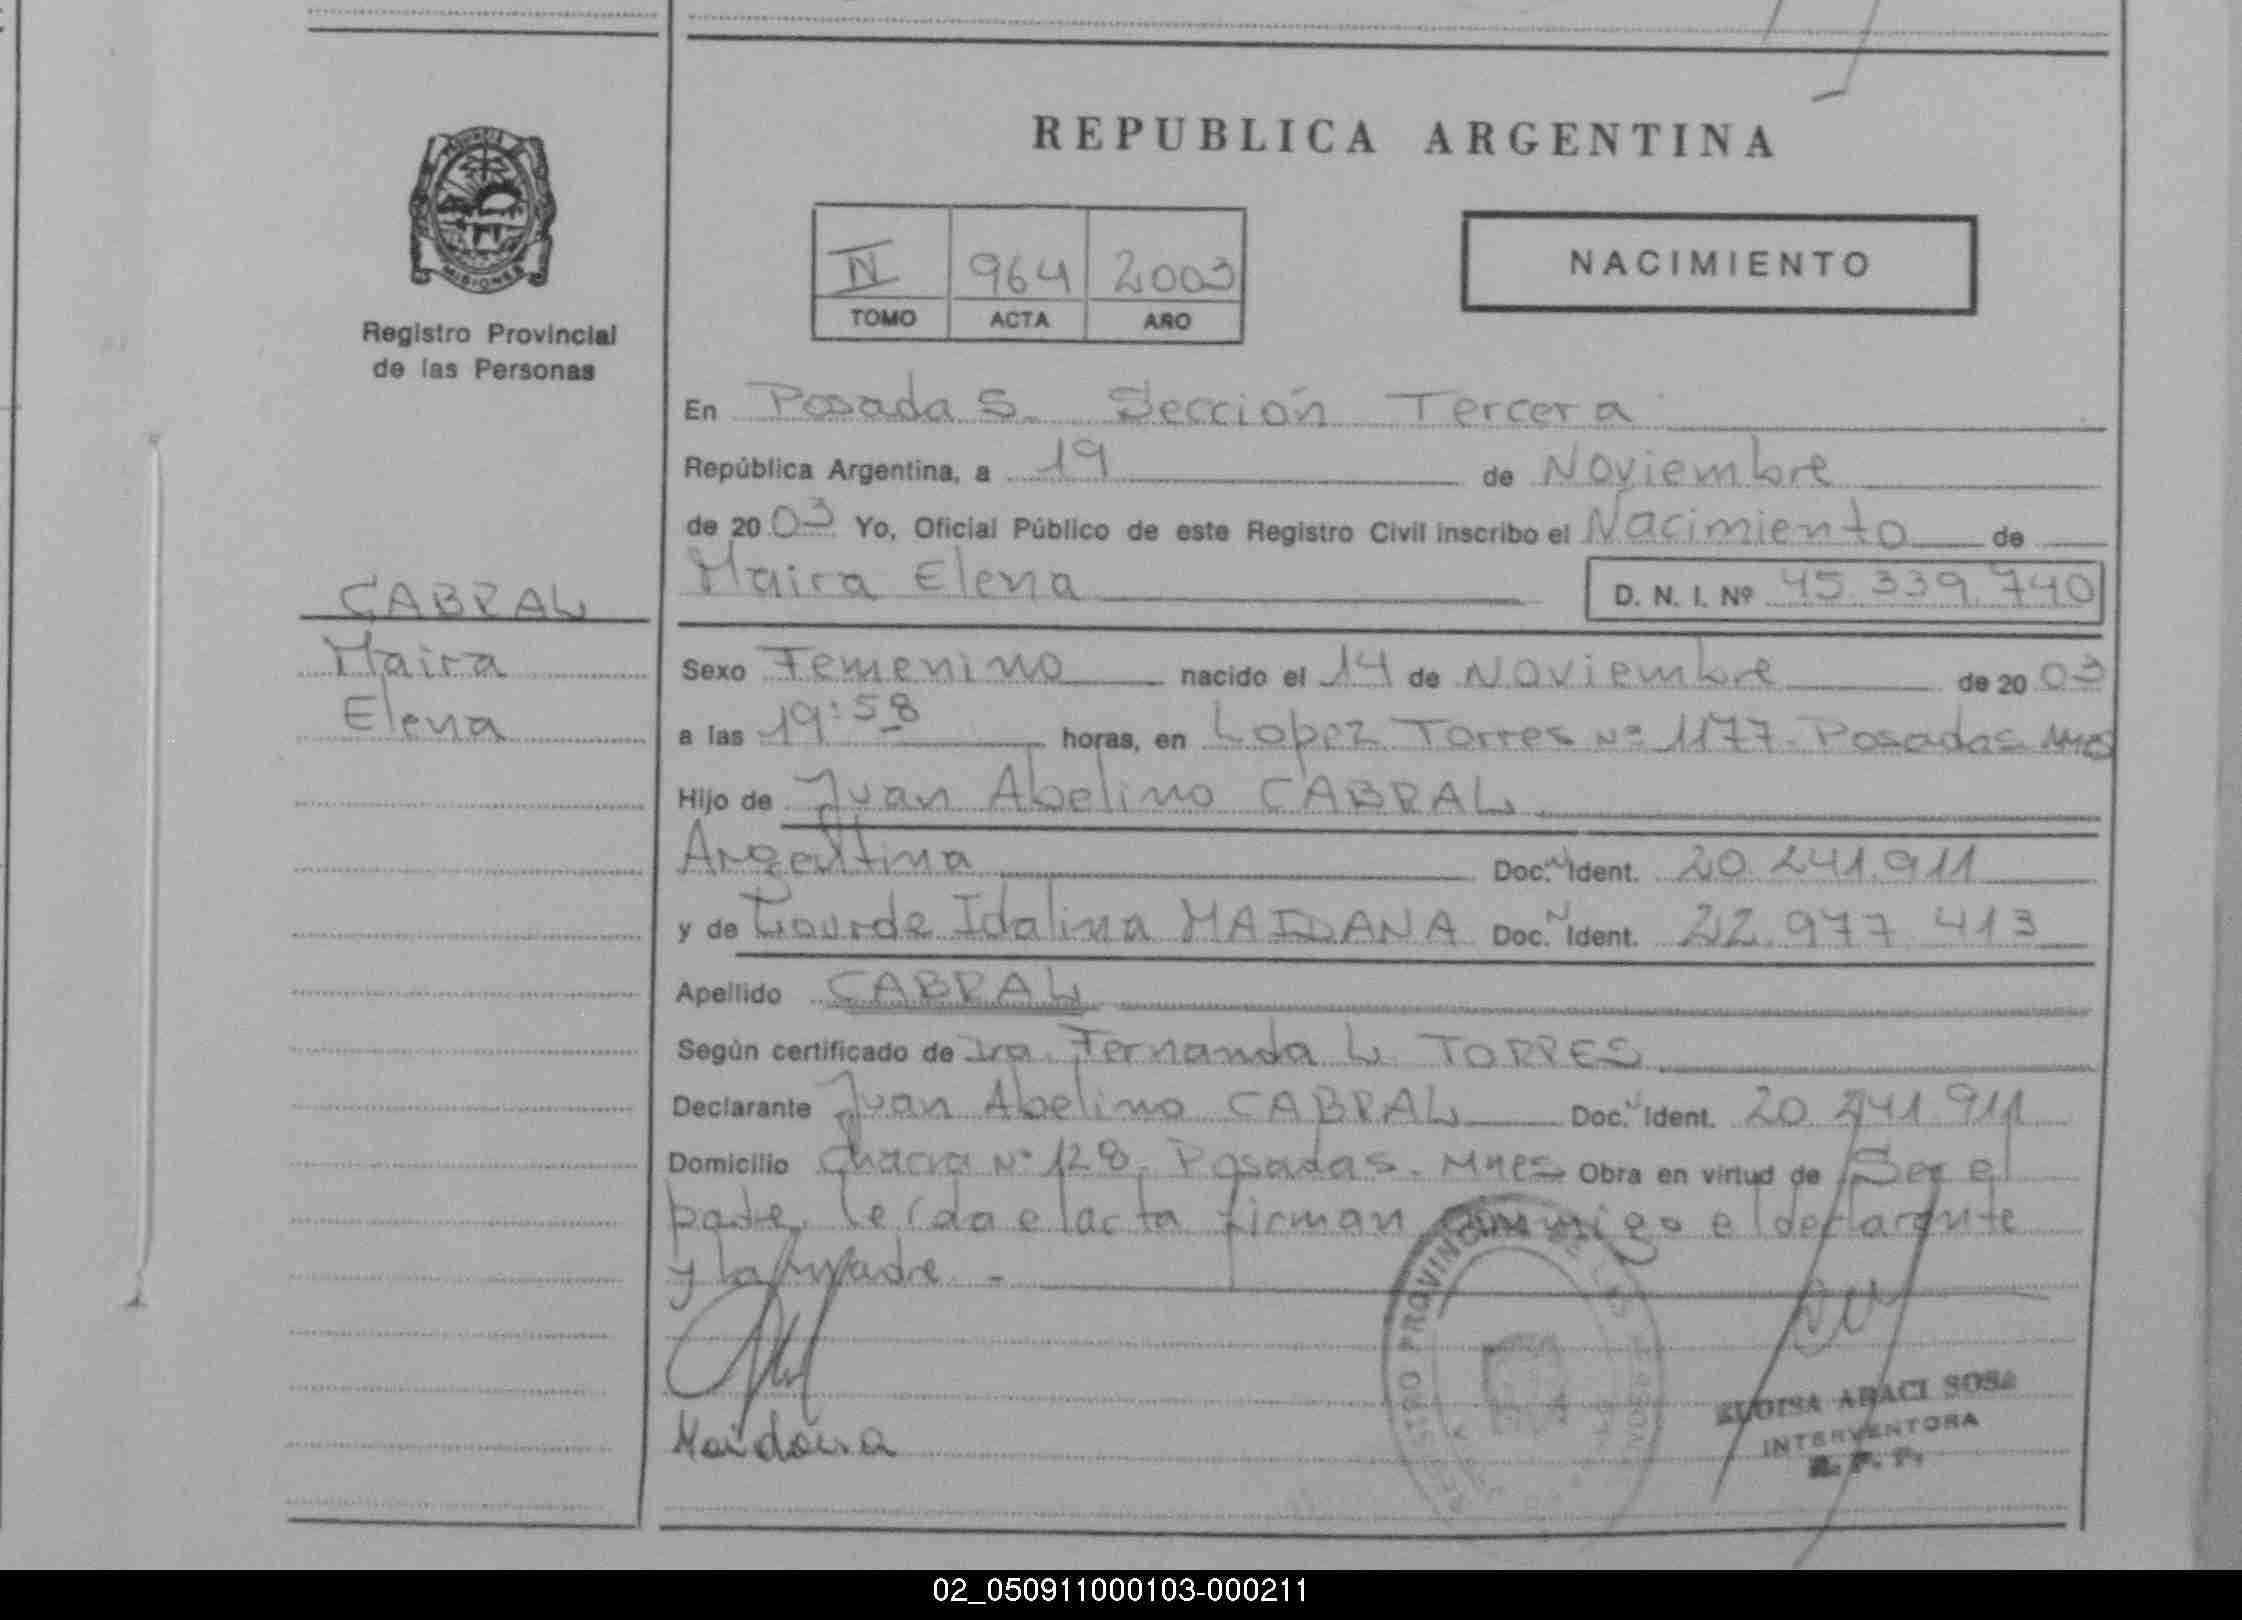 REPUBLICA ARGENTINA
IV 964 2003
TOMO ACTA AÑO
NACIMIENTO
MISIONES
Registro Provincial
de las Personas
CABRAL
Maira
Elena
En Posadas. Sección Tercera
República Argentina, a 19 de Noviembre
de 2003 Yo, Oficial Público de este Registro Civil inscribo el Nacimiento de
Maira Elena D. N. I. Nº 45.339.740
Sexo Femenino nacido el 14 de Noviembre de 2003
a las 19:58 horas, en Lopez Torres Nº 1177. Posadas Mnes
Hijo de Juan Abelino CABRAL
Argentina Doc. N Ident. 20.241.911
y de Lourde Idalina MAIDANA Doc. N Ident. 22.977.413
Apellido CABRAL
Según certificado de Dra. Fernanda L. TORRES
Declarante Juan Abelino CABRAL Doc. N Ident. 20.241.911
Domicilio Chacra Nº 128. Posadas. Mnes Obra en virtud de Ser el
padre, leída el acta firman conmigo el declarante
y la madre.-
Maidana
REGISTRO PROVINCIAL DE LAS PERSONAS
ELOISA ARACI SOSA
INTERVENTORA
R. P. P.
02_050911000103-000211